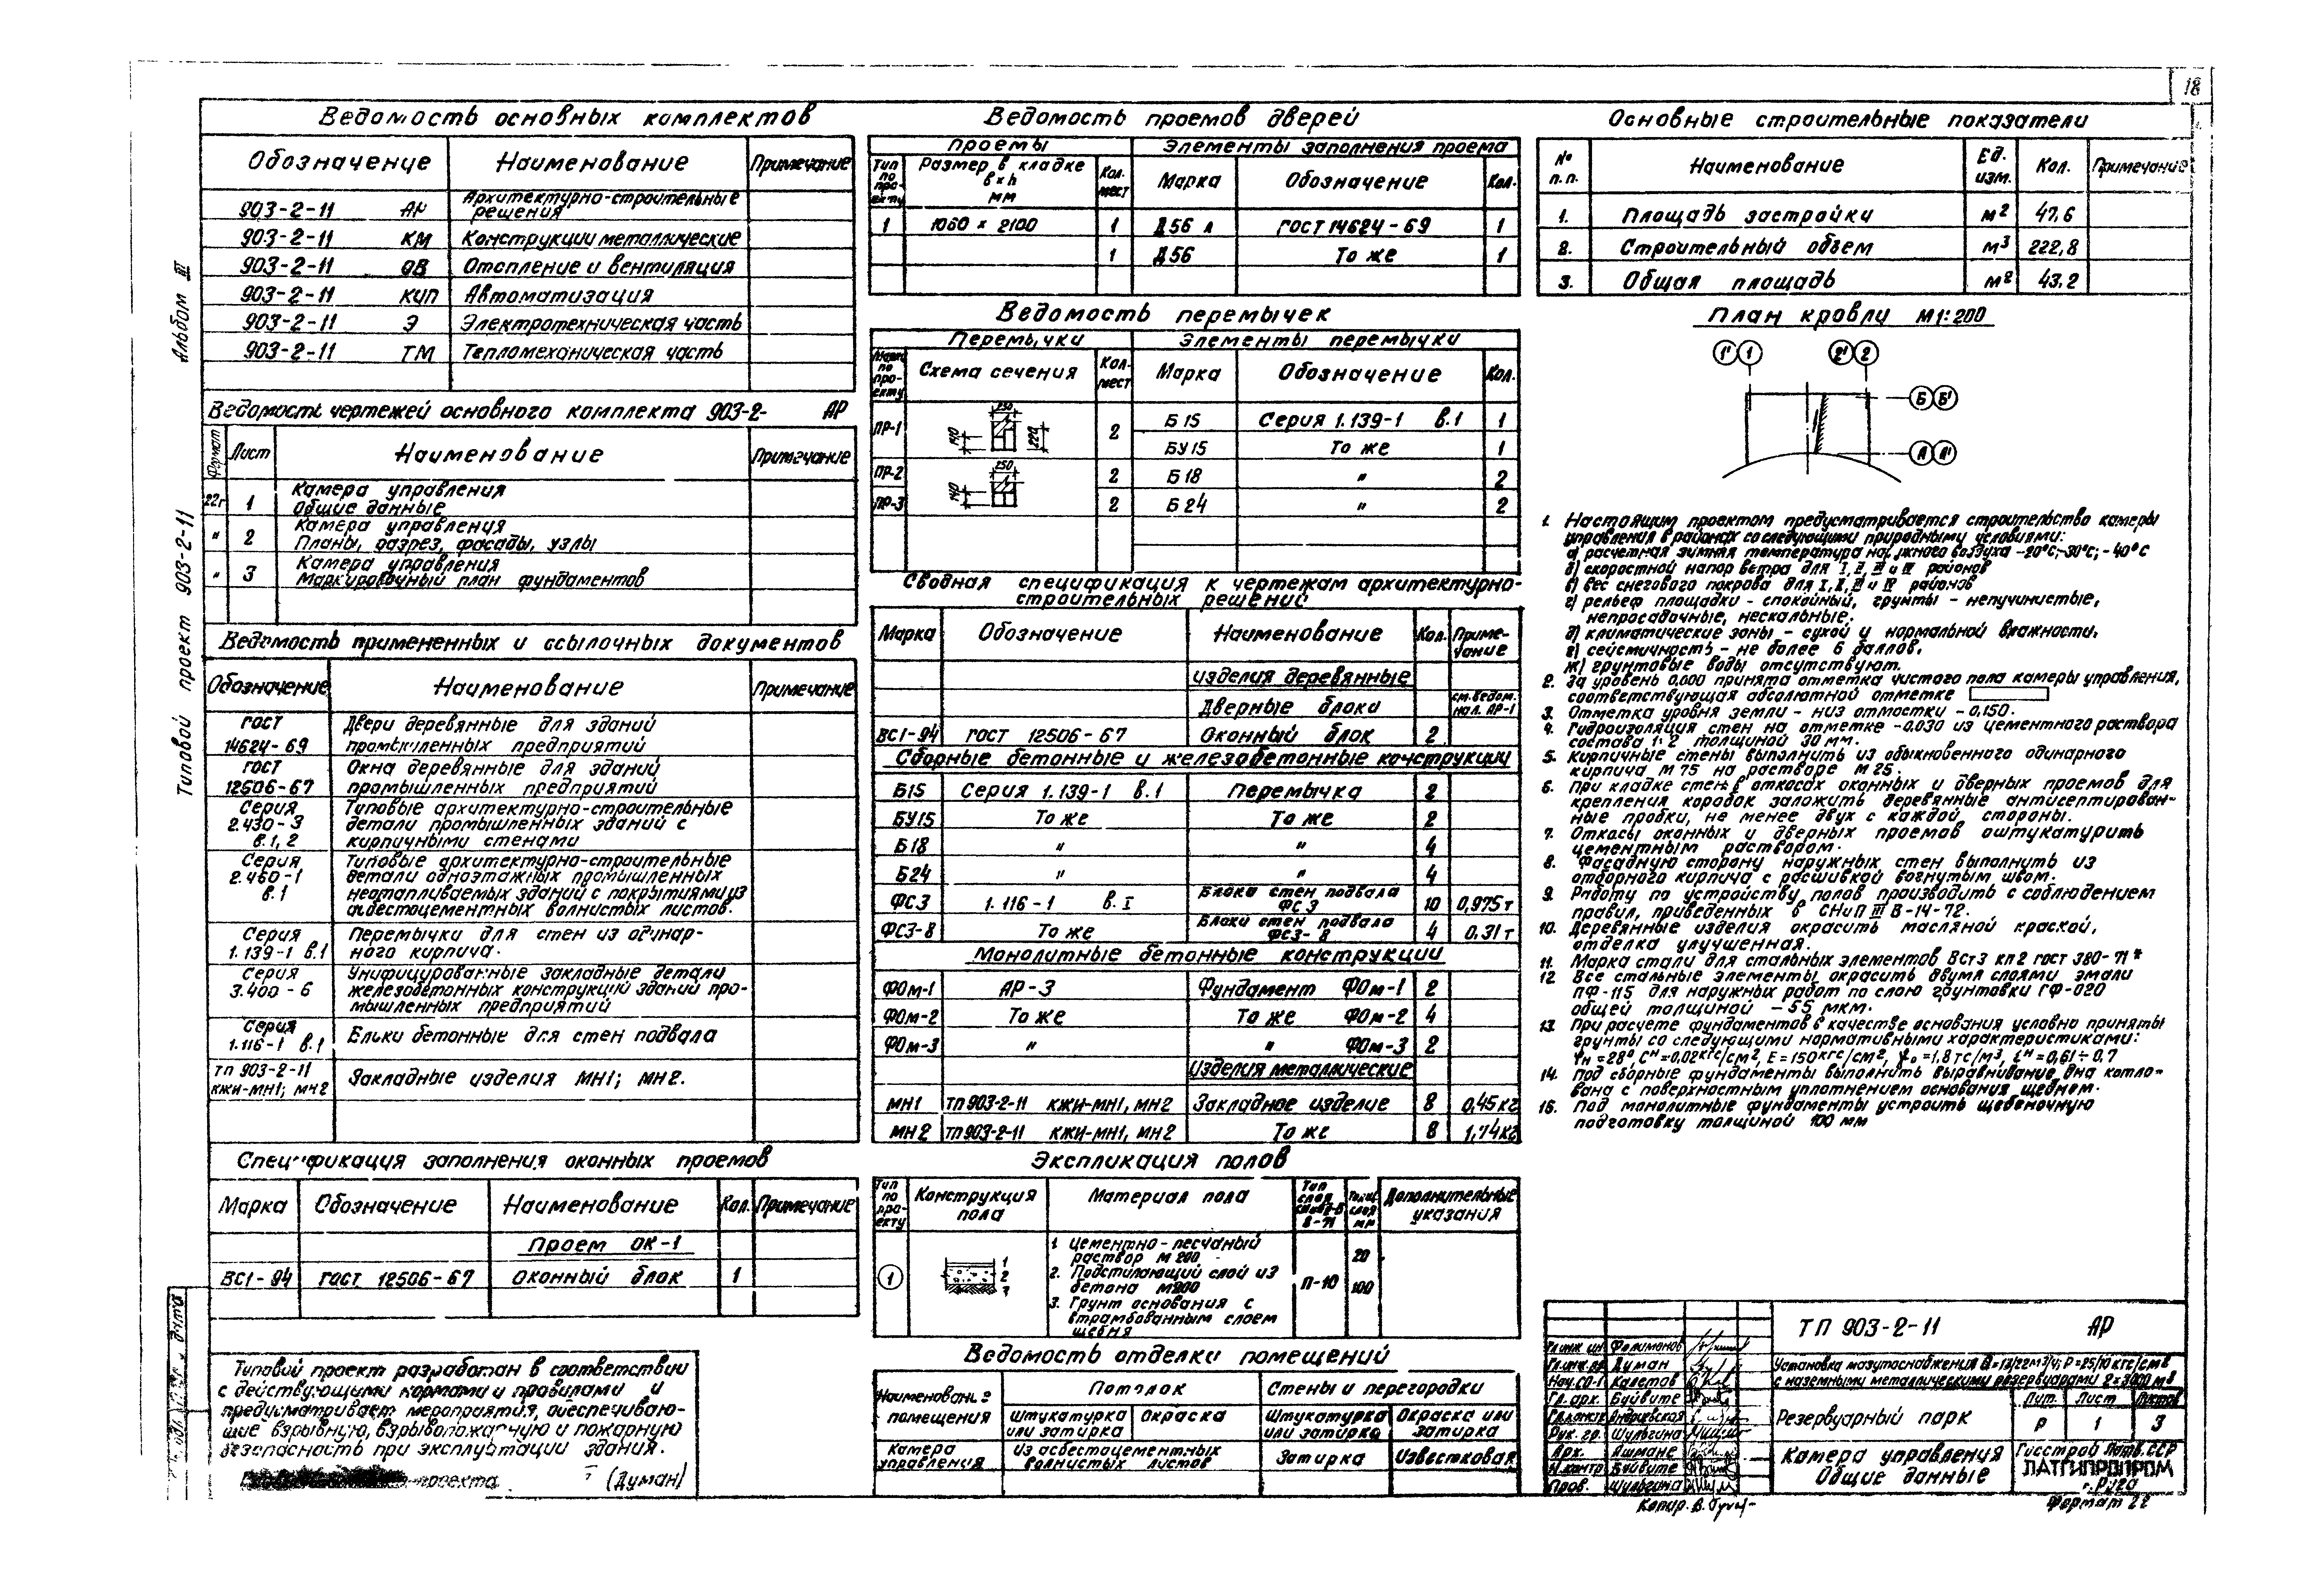 18
Альбом III
Типовой проект 903-2-11
Ведомость основных комплектов
Обозначение Наименование Примечание
903-2-11 АР Архитектурно-строительные решения
903-2-11 КМ Конструкции металлические
903-2-11 ОВ Отопление и вентиляция
903-2-11 КИП Автоматизация
903-2-11 Э Электротехническая часть
903-2-11 ТМ Тепломеханическая часть
Ведомость чертежей основного комплекта 903-2- АР
Формат Лист Наименование Примечание
22г 1 Камера управления
Общие данные
" 2 Камера управления
Планы, разрез, фасады, узлы
" 3 Камера управления
Маркировочный план фундаментов
Ведомость примененных и ссылочных документов
Обозначение Наименование Примечание
ГОСТ 14624-69 Двери деревянные для зданий
промышленных предприятий
ГОСТ 12506-67 Окна деревянные для зданий
промышленных предприятий
Серия 2.430-3 в.1, 2 Типовые архитектурно-строительные
детали промышленных зданий с
кирпичными стенами
Серия 2.460-1 в.1 Типовые архитектурно-строительные
детали одноэтажных промышленных
неотапливаемых зданий с покрытиями из
асбестоцементных волнистых листов.
Серия 1.139-1 в.1 Перемычки для стен из одинар-
ного кирпича.
Серия 3.400-6 Унифицированные закладные детали
железобетонных конструкций зданий про-
мышленных предприятий
Серия 1.116-1 в.1 Блоки бетонные для стен подвала
ТП 903-2-11
КЖИ-МН1; МН2 Закладные изделия МН1; МН2.
Спецификация заполнения оконных проемов
Марка Обозначение Наименование Кол. Примечание
Проем ОК-1
ВС1-94 ГОСТ 12506-67 Оконный блок 1
Типовой проект разработан в соответствии
с действующими нормами и правилами и
предусматривает мероприятия, обеспечиваю-
щие взрывную, взрывопожарную и пожарную
безопасность при эксплуатации здания.
проекта (Думан)
Ведомость проемов дверей
Проемы Элементы заполнения проема
Тип по про-екту Размер в кладке в×h мм Кол. мест Марка Обозначение Кол.
1 1060 × 2100 1 Д56 л ГОСТ 14624-69 1
1 Д56 То же 1
Ведомость перемычек
Перемычки Элементы перемычки
Марка по про-екту Схема сечения Кол. мест Марка Обозначение Кол.
ПР-1 250 140 220 2 Б15 Серия 1.139-1 в.1 1
БУ15 То же 1
ПР-2 250 140 2 Б18 " 2
ПР-3 2 Б24 " 2
Сводная спецификация к чертежам архитектурно-
строительных решений
Марка Обозначение Наименование Кол. Приме-чание
Изделия деревянные
Дверные блоки см. ведом. на л. АР-1
ВС1-94 ГОСТ 12506-67 Оконный блок 2
Сборные бетонные и железобетонные конструкции
Б15 Серия 1.139-1 в.1 Перемычка 2
БУ15 То же То же 2
Б18 " " 4
Б24 " " 4
ФС3 1.116-1 в.I Блоки стен подвала ФС3 10 0,975т
ФС3-8 То же Блоки стен подвала ФС3-8 4 0,31т
Монолитные бетонные конструкции
ФОм-1 АР-3 Фундамент ФОм-1 2
ФОм-2 То же То же ФОм-2 4
ФОм-3 " " ФОм-3 2
Изделия металлические
МН1 ТП 903-2-11 КЖИ-МН1, МН2 Закладное изделие 8 0,45кг
МН2 ТП 903-2-11 КЖИ-МН1, МН2 То же 8 1,74кг
Экспликация полов
Тип по про-екту Конструкция пола Материал пола Тип слоя В-71 Толщ. слоя мм Дополнительные указания
1 1 2 3
1. Цементно-песчаный
раствор М 200 20
2. Подстилающий слой из
бетона М200 П-10 100
3. Грунт основания с
втрамбованным слоем
щебня
Ведомость отделки помещений
Наименование помещения Потолок Стены и перегородки
Штукатурка или затирка Окраска Штукатурка или затирка Окраска или затирка
Камера управления Из асбестоцементных волнистых листов Затирка Известковая
Основные строительные показатели
№ п.п. Наименование Ед. изм. Кол. Примечание
1. Площадь застройки м2 47,6
2. Строительный объем м3 222,8
3. Общая площадь м2 43,2
План кровли М1:200
1' 1 2' 2
Б Б'
А А'
1. Настоящим проектом предусматривается строительство камеры
управления в районах со следующими природными условиями:
а) расчетная зимняя температура наружного воздуха -20°С; -30°С; -40°С
б) скоростной напор ветра для I, II, III и IV районов
в) вес снегового покрова для I, II, III и IV районов
г) рельеф площадки - спокойный, грунты - непучинистые,
непросадочные, нескальные.
д) климатические зоны - сухой и нормальной влажности.
е) сейсмичность - не более 6 баллов.
ж) грунтовые воды отсутствуют.
2. За уровень 0.000 принята отметка чистого пола камеры управления,
соответствующая абсолютной отметке
3. Отметка уровня земли - низ отмостки -0,150.
4. Гидроизоляция стен на отметке -0.030 из цементного раствора
состава 1:2 толщиной 30 мм.
5. Кирпичные стены выполнить из обыкновенного одинарного
кирпича М 75 на растворе М 25.
6. При кладке стен в откосах оконных и дверных проемов для
крепления коробок заложить деревянные антисептирован-
ные пробки, не менее двух с каждой стороны.
7. Откосы оконных и дверных проемов оштукатурить
цементным раствором.
8. Фасадную сторону наружных стен выполнить из
отборного кирпича с расшивкой вогнутым швом.
9. Работу по устройству полов производить с соблюдением
правил, приведенных в СНиП III В-14-72.
10. Деревянные изделия окрасить масляной краской,
отделка улучшенная.
11. Марка стали для стальных элементов ВСт3 кп2 ГОСТ 380-71*
12. Все стальные элементы окрасить двумя слоями эмали
ПФ-115 для наружных работ по слою грунтовки ГФ-020
общей толщиной -55 мкм.
13. При расчете фундаментов в качестве основания условно приняты
грунты со следующими нормативными характеристиками:
φн=28°, Сн=0,02кгс/см2, Е=150кгс/см2, γо=1,8тс/м3, εн=0,61÷0,7
14. Под сборные фундаменты выполнить выравнивание дна котло-
вана с поверхностным уплотнением основания щебнем.
15. Под монолитные фундаменты устроить щебеночную
подготовку толщиной 100 мм
ТП 903-2-11 АР
Установка мазутоснабжения Q=12/22м3/ч; Р=25/10 кгс/см2
с наземными металлическими резервуарами 2×3000 м3
Гл.инж.ин Филимонов
Гл.инж.пр. Думан
Нач.СО-1 Калетов
Гл. арх. Буйвите
Гл.констр. Андриевская
Рук. гр. Шульгина
Арх. Яшмане
Н.контр Буйвите
Пров. Шульгина
Резервуарный парк
Лит. Лист Листов
Р 1 3
Камера управления
Общие данные
Госстрой Латв.ССР
ЛАТГИПРОПРОМ
г.Рига
Копир.
Формат 22